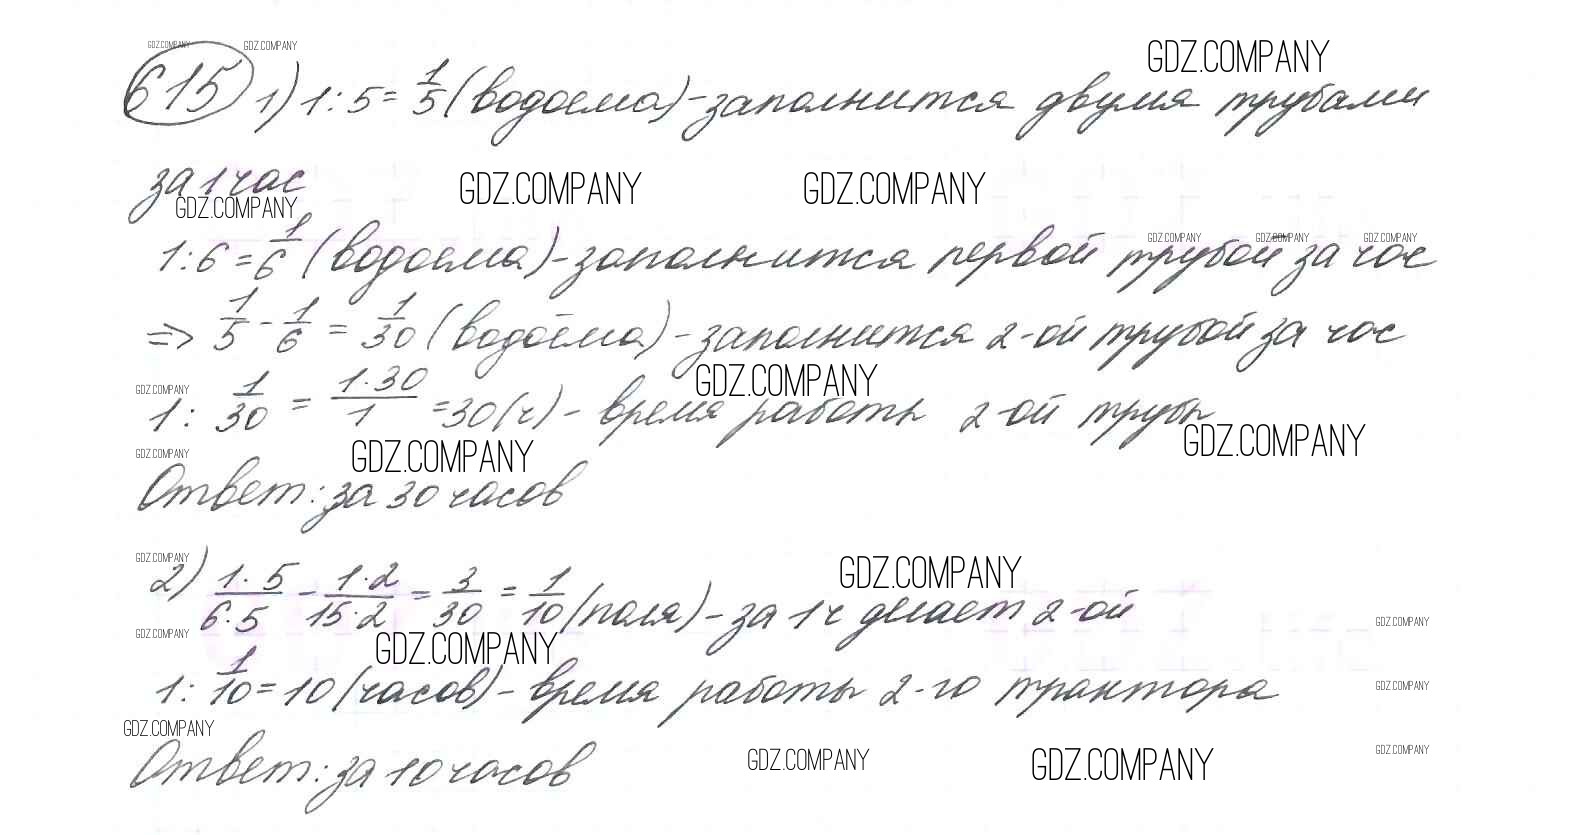 GDZ.COMPANY GDZ.COMPANY GDZ.COMPANY
615 1) 1:5=1/5 (водоема)-заполнится двумя трубами
за 1 час
GDZ.COMPANY GDZ.COMPANY GDZ.COMPANY
1:6=1/6 (водоема)-заполнится первой трубой за час
GDZ.COMPANY GDZ.COMPANY GDZ.COMPANY
=> 1/5 - 1/6 = 1/30 (водоёма)-заполнится 2-ой трубой за час
GDZ.COMPANY GDZ.COMPANY
1: 1/30 = 1·30/1 =30(ч)- время работы 2-ой трубы
GDZ.COMPANY GDZ.COMPANY GDZ.COMPANY
Ответ: за 30 часов
GDZ.COMPANY GDZ.COMPANY
2) 1·5/6·5 - 1·2/15·2 = 3/30 = 1/10 (поля)-за 1ч делает 2-ой
GDZ.COMPANY GDZ.COMPANY GDZ.COMPANY
1: 1/10=10 (часов)- время работы 2-го трактора
GDZ.COMPANY GDZ.COMPANY
Ответ: за 10 часов
GDZ.COMPANY GDZ.COMPANY GDZ.COMPANY